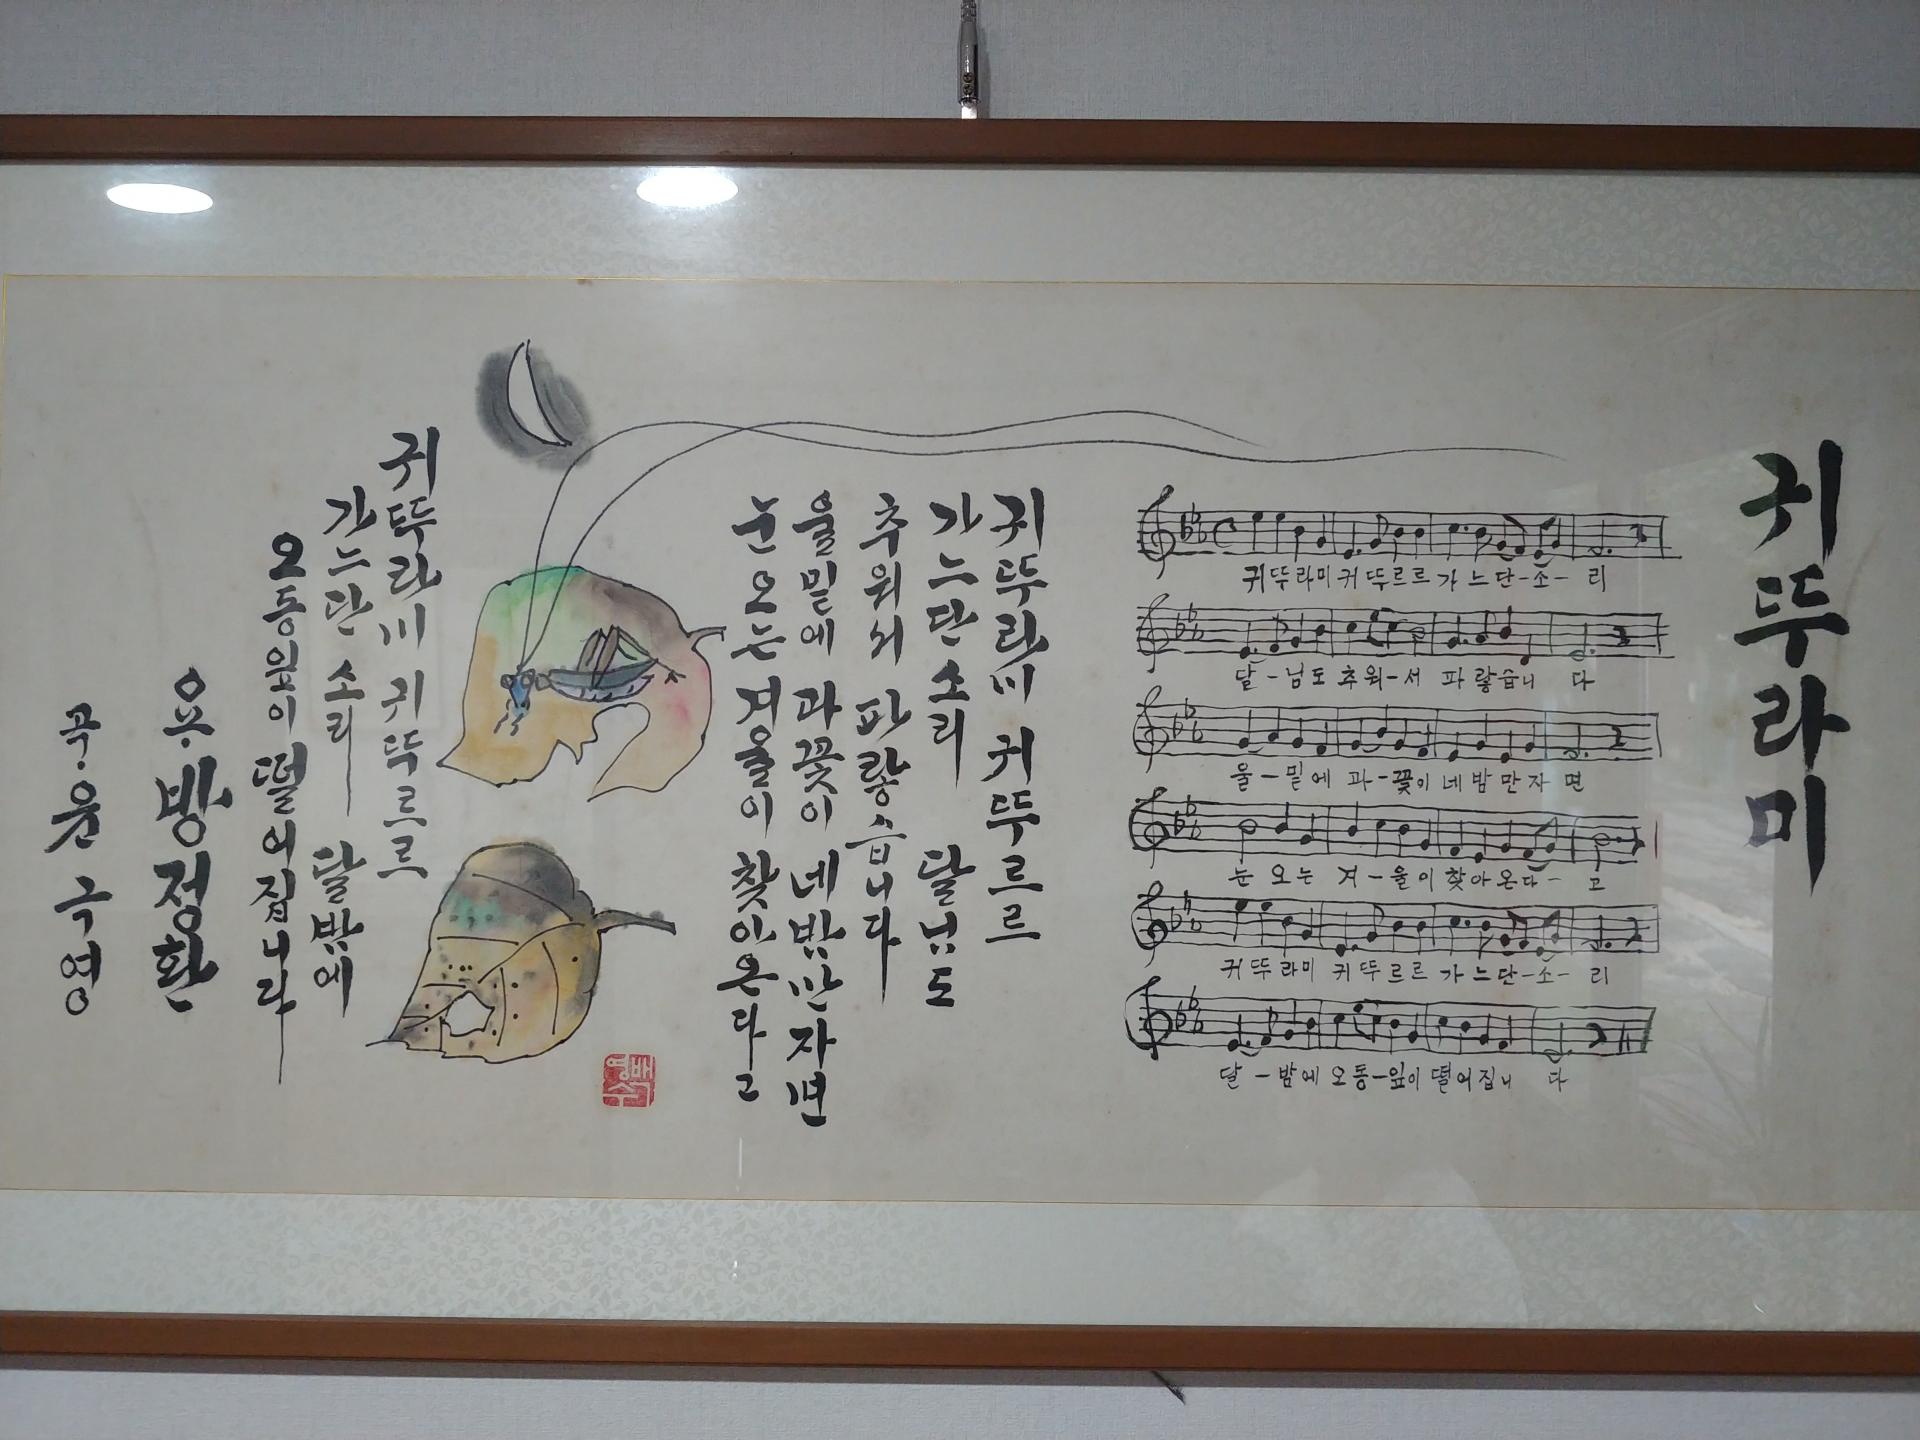 귀뚜라미
귀뚜라미 귀뚜르르 가느단-소- 리
달-님도 추워-서 파랗습니 다
울-밑에 과-꽃이 네밤만자 면
눈 오는 겨-울이 찾아온다- 고
귀뚜라미 귀뚜르르 가느단-소- 리
달-밤에 오동-잎이 떨어집니 다
귀뚜라미 귀뚜르르
가느단 소리 달님도
추워서 파랗습니다
울밑에 과꽃이 네밤만자면
눈오는 겨울이 찾아온다고
귀뚜라미 귀뚜르르
가느단 소리 달밤에
오동잎이 떨어집니다
요·방정환
곡·윤극영